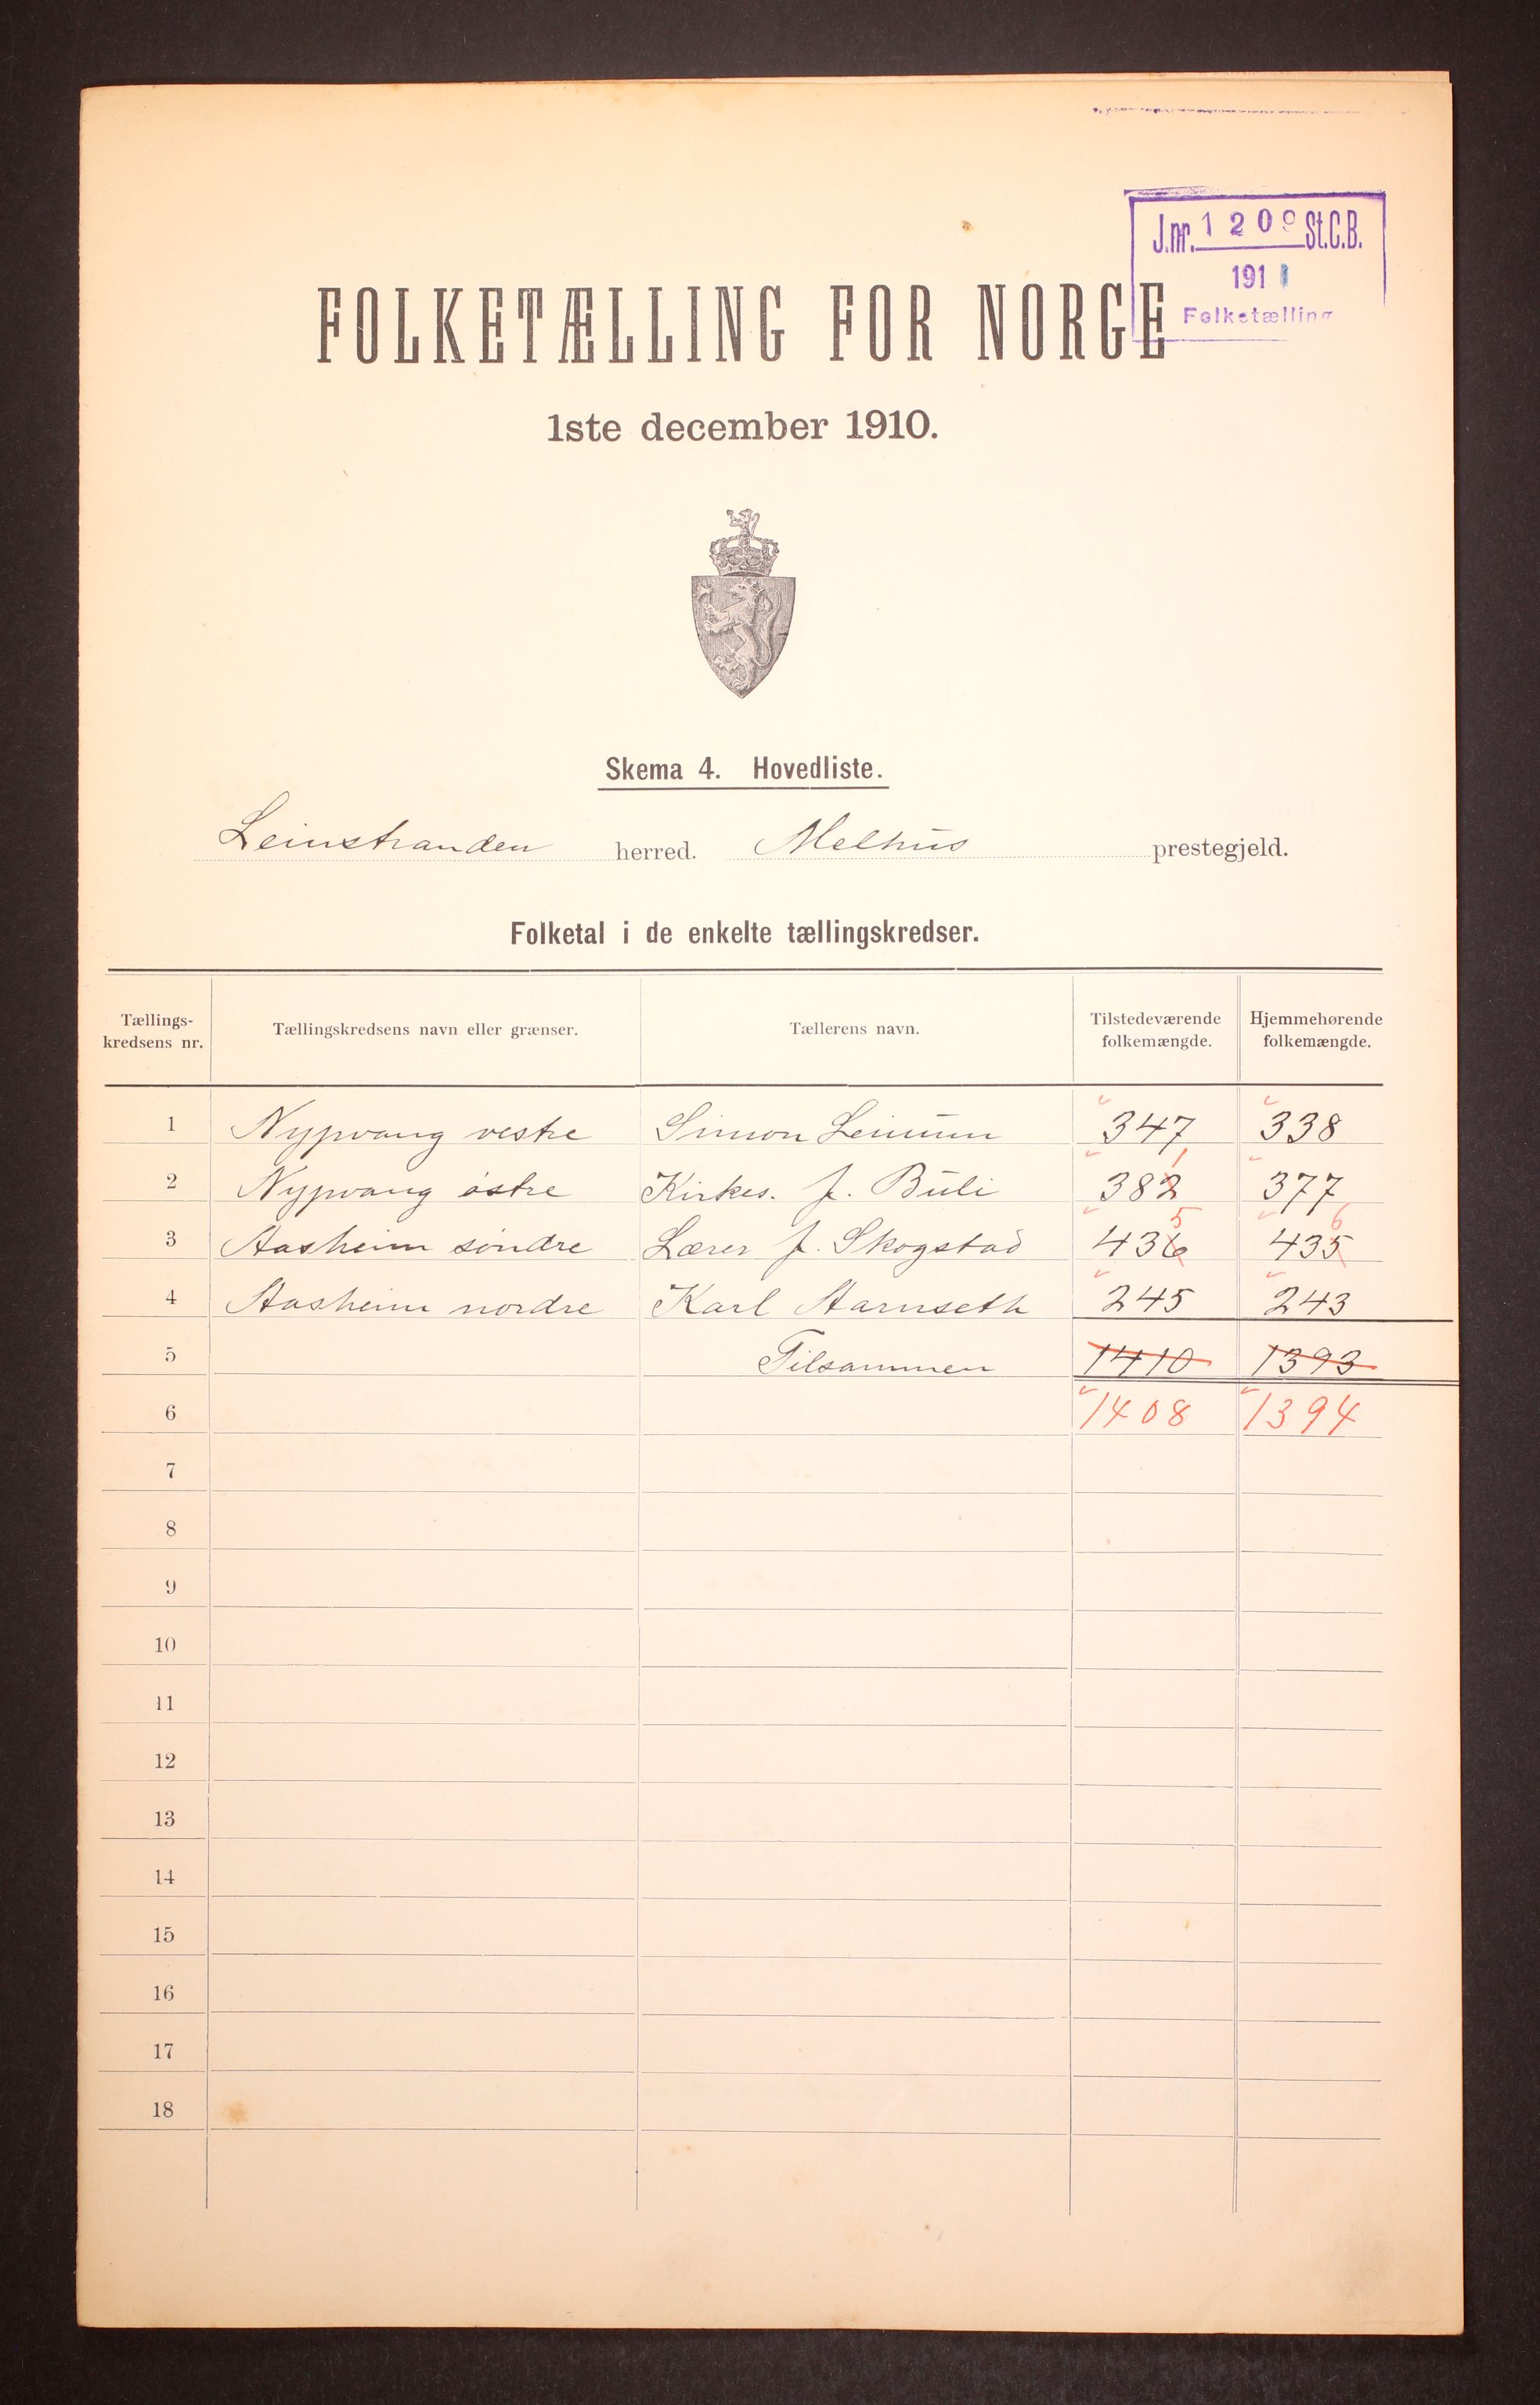 J.nr. 1209 St.C.B.
1911
Folketælling
FOLKETÆLLING FOR NORGE
1ste december 1910.
Skema 4. Hovedliste.
Leinstranden herred. Melhus prestegjeld.
Folketal i de enkelte tællingskredser.
Tællings-kredsens nr. Tællingskredsens navn eller grænser. Tællerens navn. Tilstedeværende folkemængde. Hjemmehørende folkemængde.
1 Nypvang vestre Simon Leinum 347 338
1
2 Nypvang østre Kirkes. J. Buli 382 377
5 6
3 Aasheim søndre Lærer J. Skogstad 436 435
4 Aasheim nordre Karl Aarnseth 245 243
5 Tilsammen 1410 1393
6 1408 1394
7
8
9
10
11
12
13
14
15
16
17
18